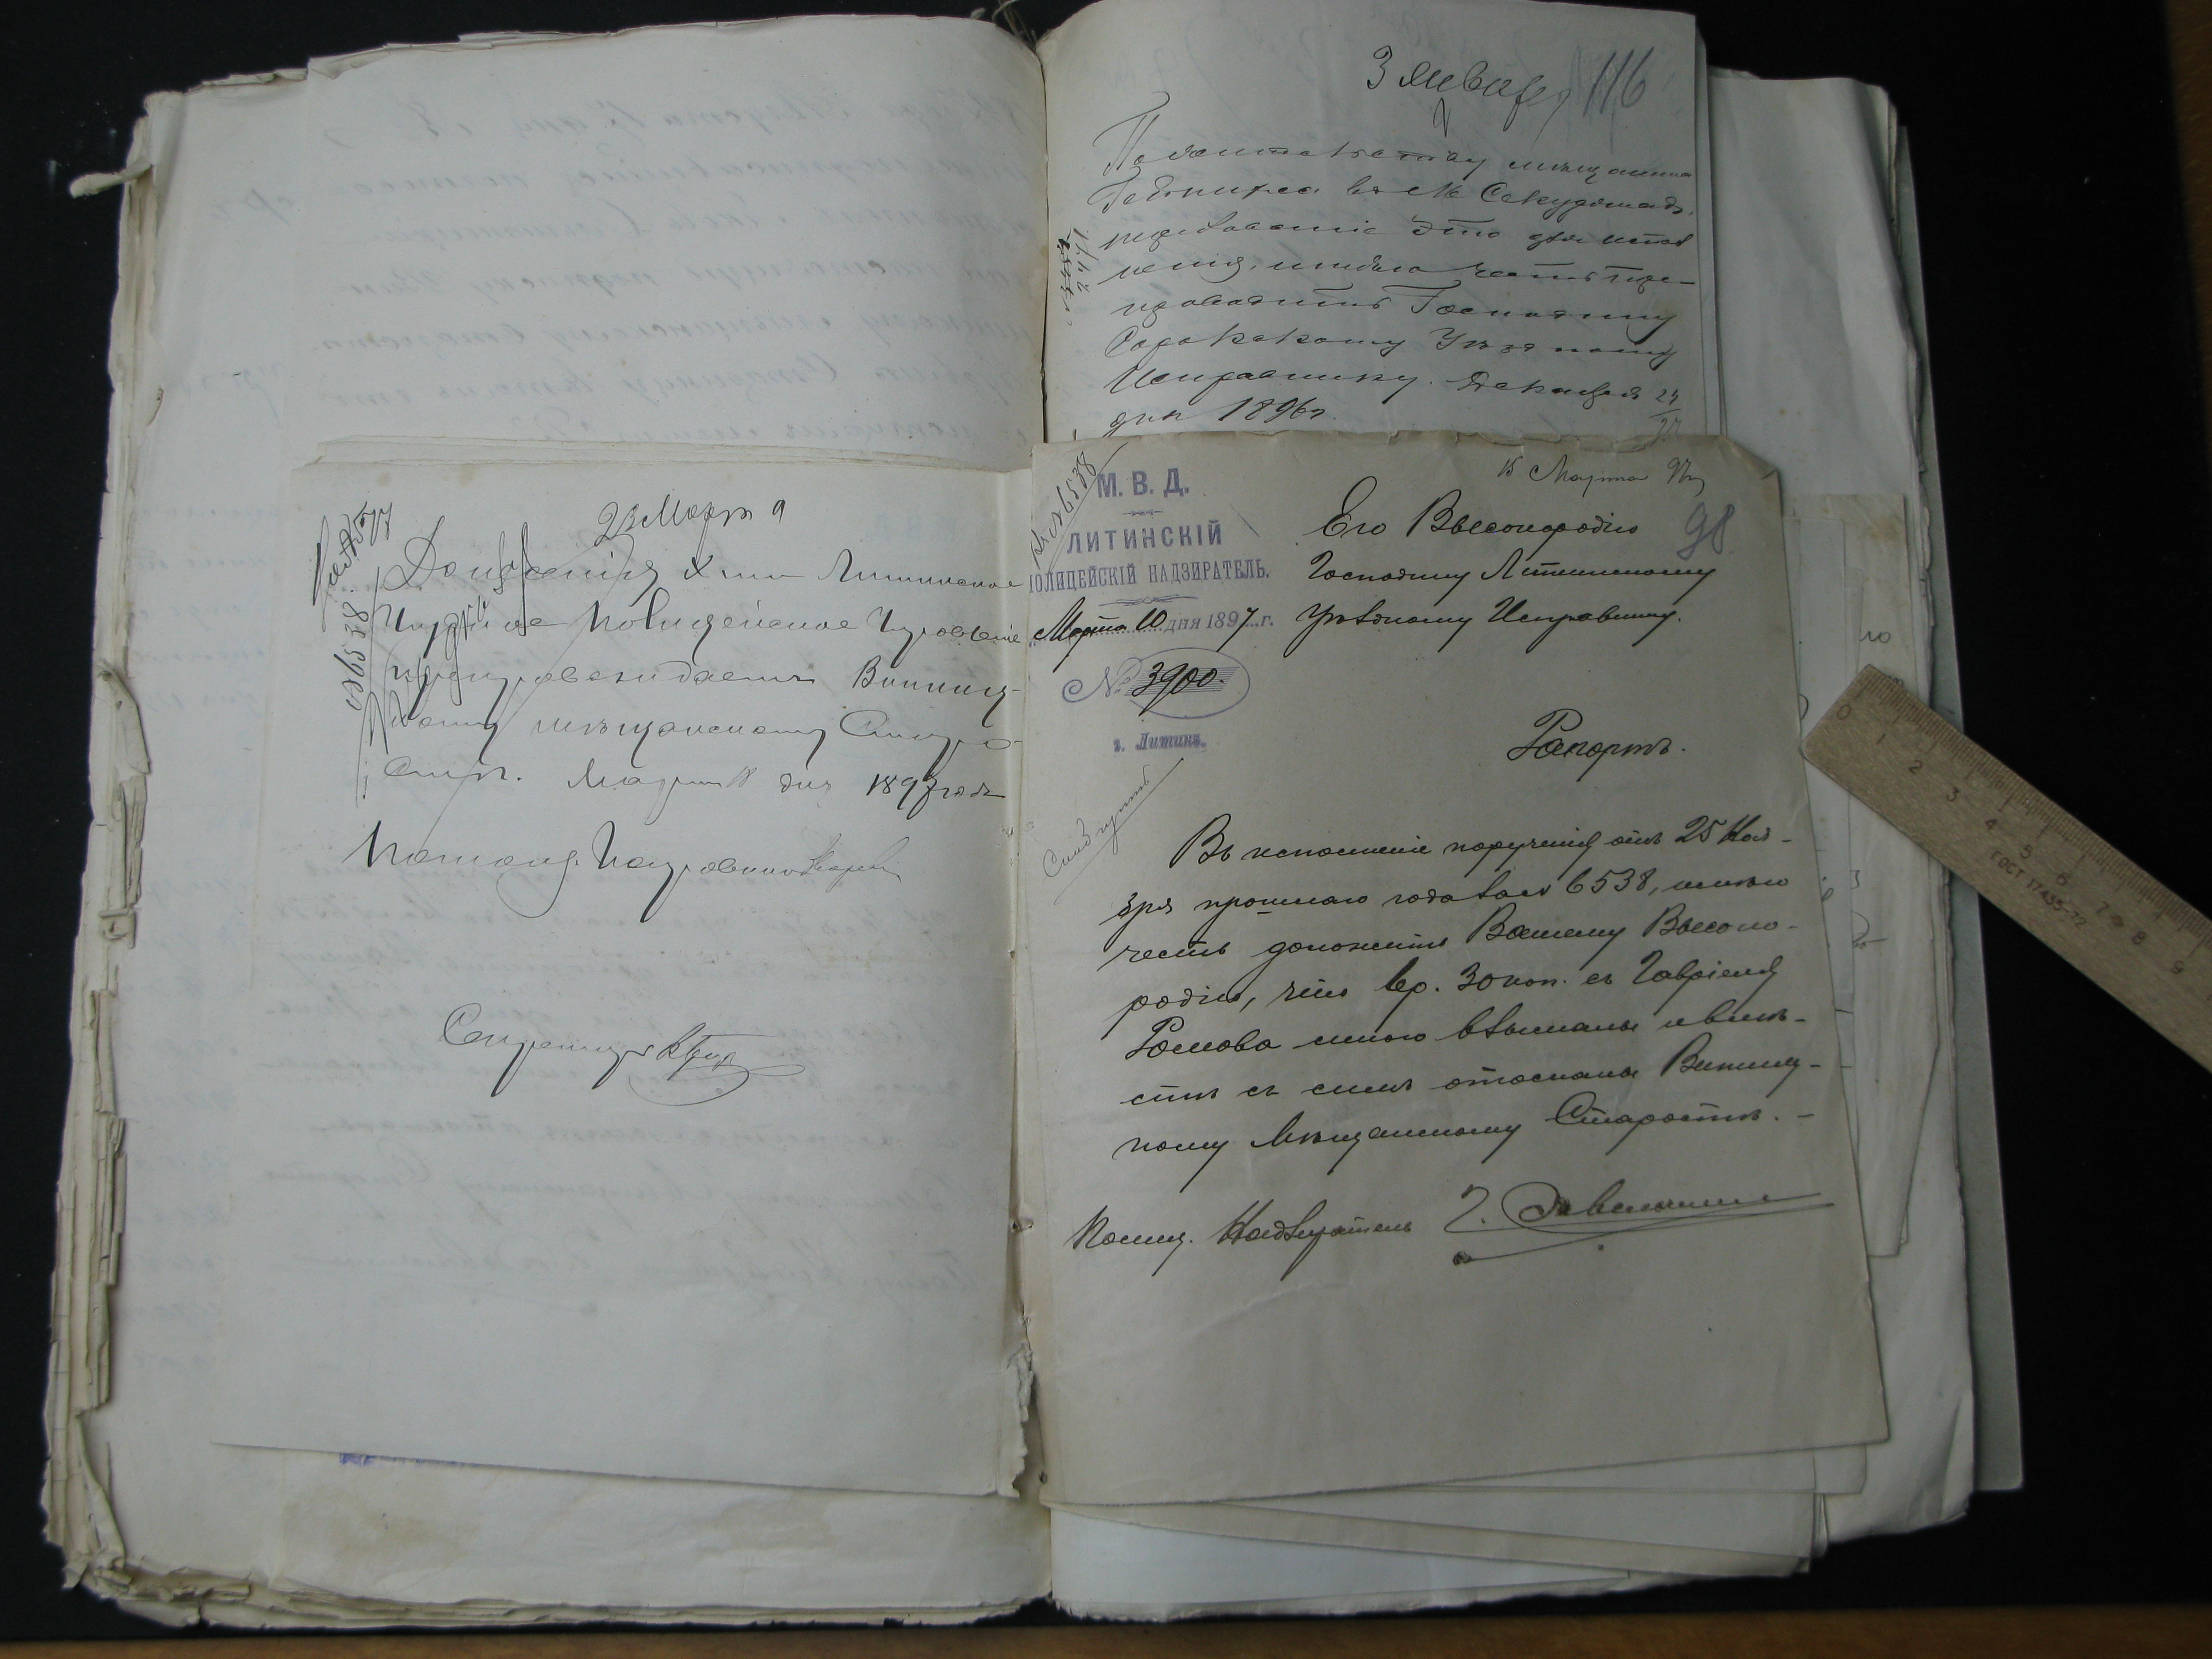 3 Января 116
По жительству мещанина
въ м. Секурянахъ,
это для испол
ненія, имѣю честь пре-
проводить Господину
Сорокскому Уѣздному
Исправнику. Декабря 24
дня 1896 г.
23 Марта 9
№ 6538
Литинское
Полицейское Управленіе
препровождаетъ Винниц-
кому мѣщанскому Старо-
стѣ. Марта 18 дня 1897 года
Секретарь
№ 6538
М. В. Д.
ЛИТИНСКІЙ
ПОЛИЦЕЙСКІЙ НАДЗИРАТЕЛЬ.
Марта 10 дня 1897 г.
№ 3900.
г. Литинъ.
15 Марта 97
98
Его Высокородію
Господину Литинскому
Уѣздному Исправнику.
Рапортъ.
Въ исполненіе порученія отъ 25 Ноя-
бря прошлаго года за № 6538, имѣю
честь доложить Вашему Высоко-
родію, что 1 р. 30 коп. съ Гавріеля
Ромова мною взысканы и вмѣ-
стѣ съ симъ отосланы Винниц-
кому Мѣщанскому Старостѣ. -
Полиц. Надзиратель
0 1 2 3 4 5 6 7 8 9
ГОСТ 17435-72